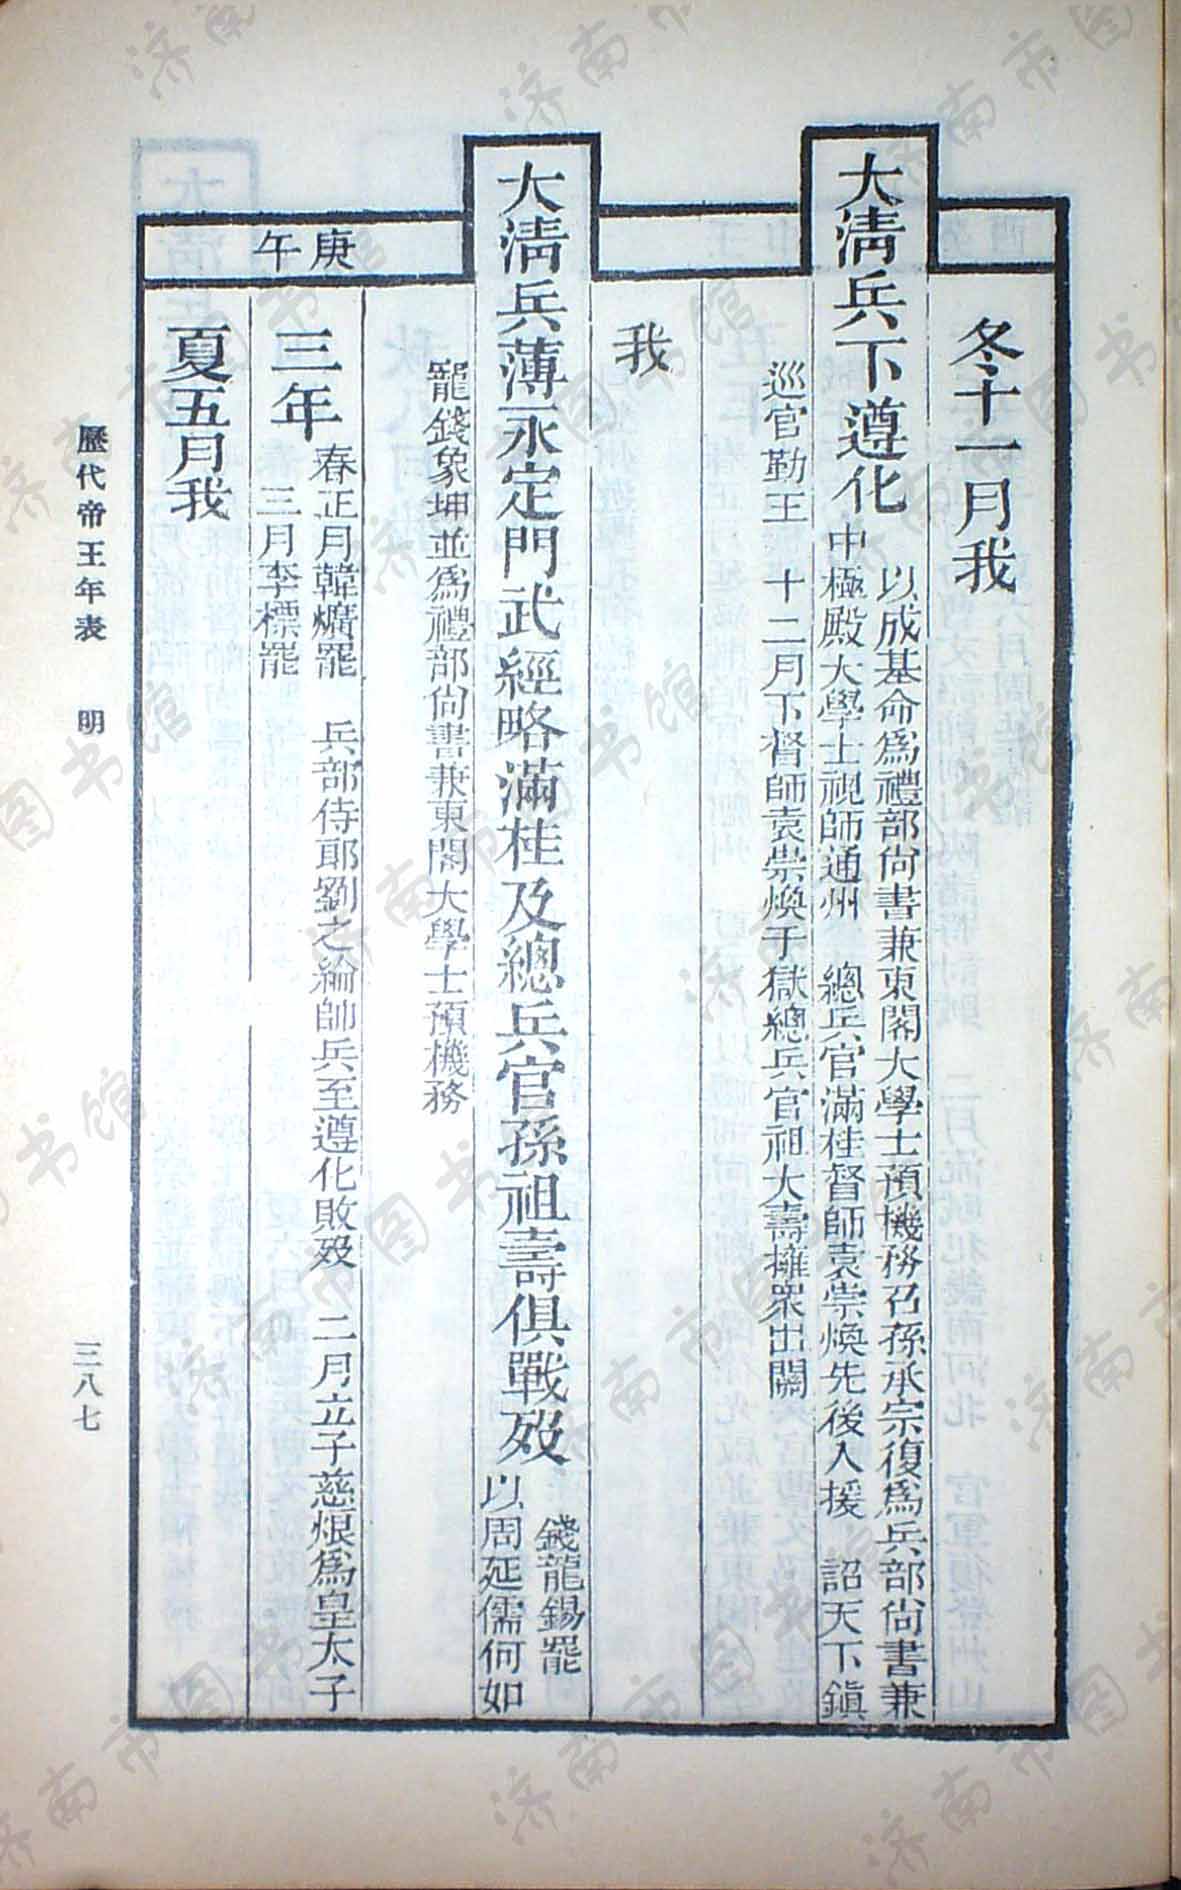 冬十一月我
大淸兵下遵化
以成基命爲禮部尙書兼東閣大學士預機務召孫承宗復爲兵部尙書兼
中極殿大學士視師通州　總兵官滿桂督師袁崇煥先後入援　詔天下鎭
巡官勤王　十二月下督師袁崇煥于獄總兵官祖大壽擁衆出關
我
大淸兵薄永定門武經略滿桂及總兵官孫祖壽俱戰歿
錢龍錫罷
以周延儒何如
寵錢象坤並爲禮部尙書兼東閣大學士預機務
庚午
三年
春正月韓爌罷　兵部侍郎劉之綸帥兵至遵化敗歿　二月立子慈烺爲皇太子
三月李標罷
夏五月我
歷代帝王年表　明
三八七
济南市图书馆